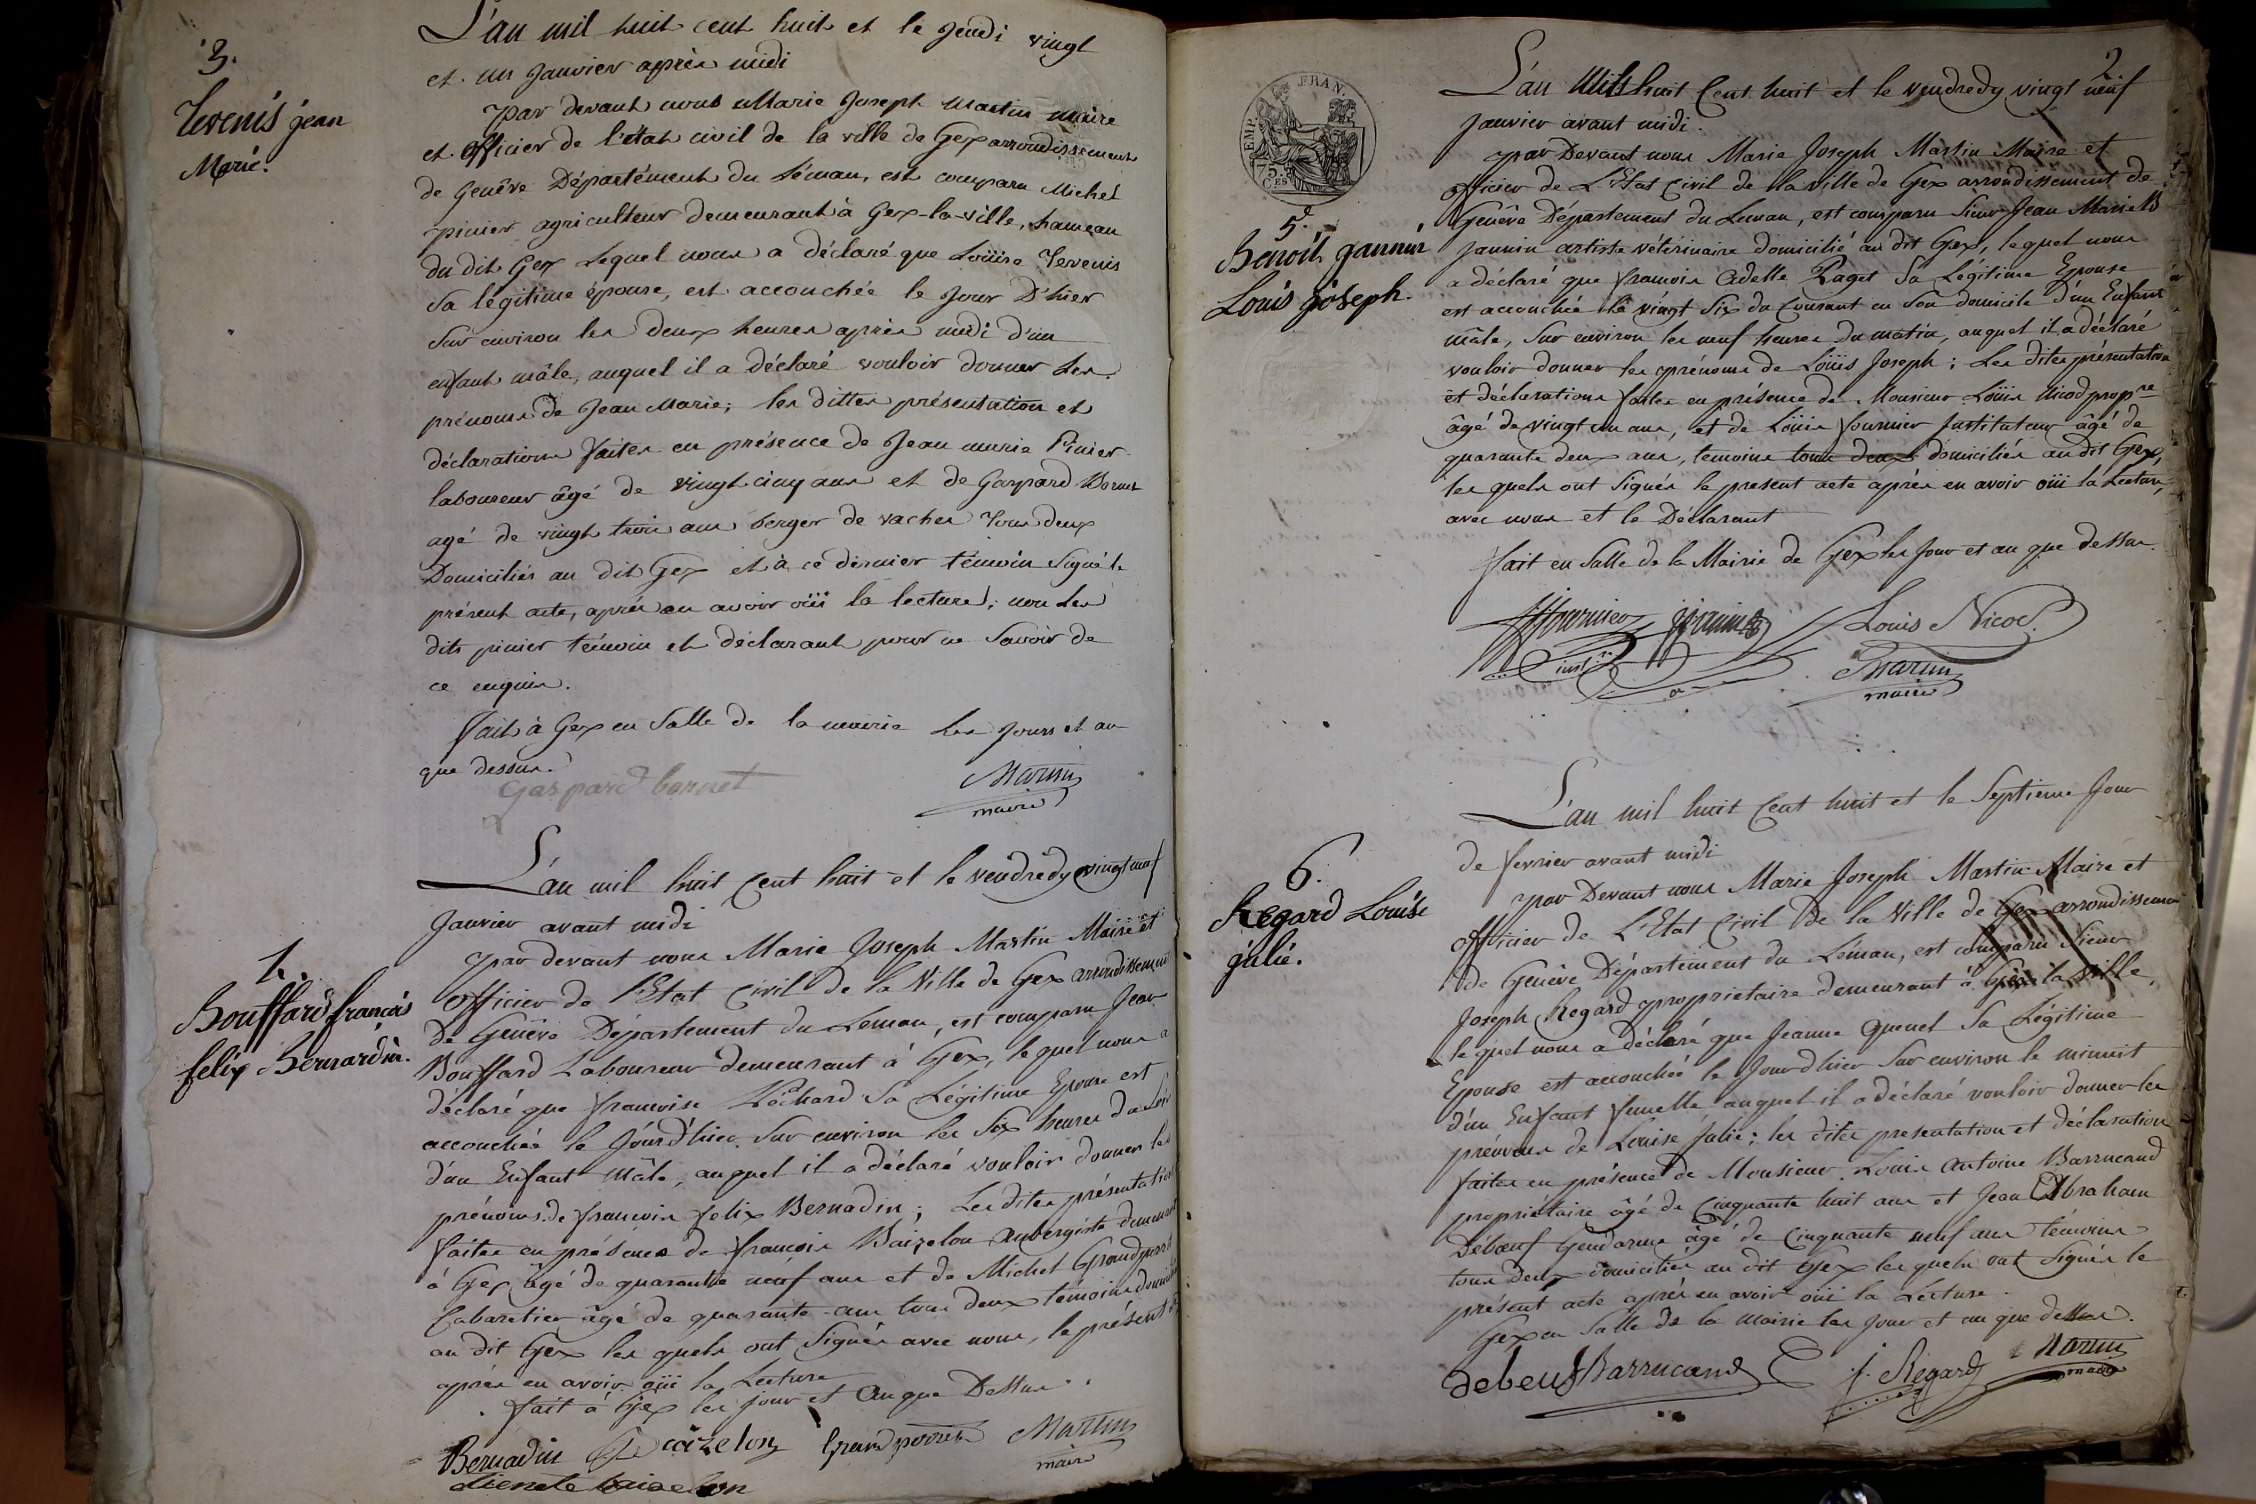 3.
Tevenis jean
Marie.
L'an mil huit cent huit et le Jeudi vingt
et un Janvier après midi
par devant nous Marie Joseph Martin maire
et officier de l'état civil de la ville de Gex arrondissement
de Genêve Département du Léman, est comparu Michel
pinier agriculteur demeurant à Gex-la-ville, hameau
du dit Gex Lequel nous a déclaré que Loüise Tevenis
sa légitime épouse, est accouchée le Jour D'hier
sur environ les deux heures après midi d'un
enfant mâle, auquel il a déclaré vouloir donner Les
prénoms de Jean Marie; les dittes présentation et
déclarations faites en présence de Jean marie Pinier
laboureur âgé de vingt cinq ans et de Gaspard Bornet
agé de vingt trois ans berger de vaches Tous deux
Domiciliés au dit Gex et à ce dernier témoin Signé le
présent acte, après en avoir oüi la lecture; non Les
dits pinier témoin et déclarant pour ne Savoir de
ce enquis.
fait à Gex en Salle de la mairie Les Jours et an
que dessus.
Gaspard bornet
Martin
maire
L'an mil huit Cent huit et le vendredy vingt neuf
Janvier avant midi
par devant nous Marie Joseph Martin Maire et
Officier de l'Etat Civil de la Ville de Gex arrondissement
de Genêve Département du Leman, est comparu Jean
Bouffard Laboureur demeurant à Gex, lequel nous a
déclaré que francoise Sa Légitime Epouse est
accouchée le Jourd'hier Sur environ les Six heures du soir
d'un Enfant mâle, auquel il a déclaré vouloir donner les
prénoms de francois felix Bernadin; Les dites présentation
faites en présence de francois Baizelon Aubergiste demeurant
à Gex âgé de quarante neuf ans et de Michel Grandperret
Cabaretier âgé de quarante ans tous deux témoins
au dit Gex les quels ont Signés avec nous, le présent
après en avoir oüi la Lecture
fait à Gex les jour et an que Dessus.
Bouffard francois
felix Bernardin.
Bernadin Baizelon Grandperret Martin
maire
2
EMP. FRAN.
75 CES
5.
Benoit jannin
Louis joseph.
L'an Mil huit Cent huit et le vendredy vingt neuf
Janvier avant midi.
par Devant nous Marie Joseph Martin Maire et
officier de L'Etat Civil de la Ville de Gex arrondissement de
Genêve Département du Leman, est comparu Sieur Jean Marie B
Jannin artiste vétérinaire domicilié au dit Gex, lequel nous
a déclaré que francoise Adelle Paget Sa Légitime Epouse
est accouchée le vingt Six du Courant en Son domicile d'un Enfant
mâle, Sur environ les neuf heures du matin, auquel il a déclaré
vouloir donner les prénoms de Loüis Joseph; Les dites présentation
et déclarations faites en présence de Monsieur Loüis Nicod propre
âgé de vingt un ans, et de Loüis fournier Instituteur âgé de
quarante deux ans, temoins tous deux domiciliés au dit Gex,
les quels ont Signés le present acte après en avoir oüi la Lecture,
avec nous et le Déclarant
fait en Salle de la Mairie de Gex les Jour et an que dessus.
fournier Jannin Louis Nicod
Martin
maire
6.
Regard Louise
julie.
L'an mil huit Cent huit et le Septieme Jour
de fevrier avant midi
par Devant nous Marie Joseph Martin Maire et
officier de L'Etat Civil De la Ville de Gex arrondissement
de Genève Département du Léman, est comparu Sieur
Joseph Regard proprietaire demeurant à Gex la ville,
lequel nous a déclaré que Jeanne Quenet Sa Légitime
Epouse est accouchée le Jourd'hier Sur environ le minuit
d'un Enfant femelle auquel il a déclaré vouloir donner les
prénoms de Louise Julie; les dites presentation et déclaration
faites en présence de Monsieur Louis Antoine Barrucand
propriétaire âgé de Cinquante huit ans et Jean Abraham
Débœuf Gendarme âgé de Cinquante neuf ans témoins
tous Deux domiciliés au dit Gex les quels ont Signés le
présent acte après en avoir oüi la Lecture.
Gex en Salle de la Mairie les Jour et an que dessus.
debeuf Barrucand j. Regard Martin
maire